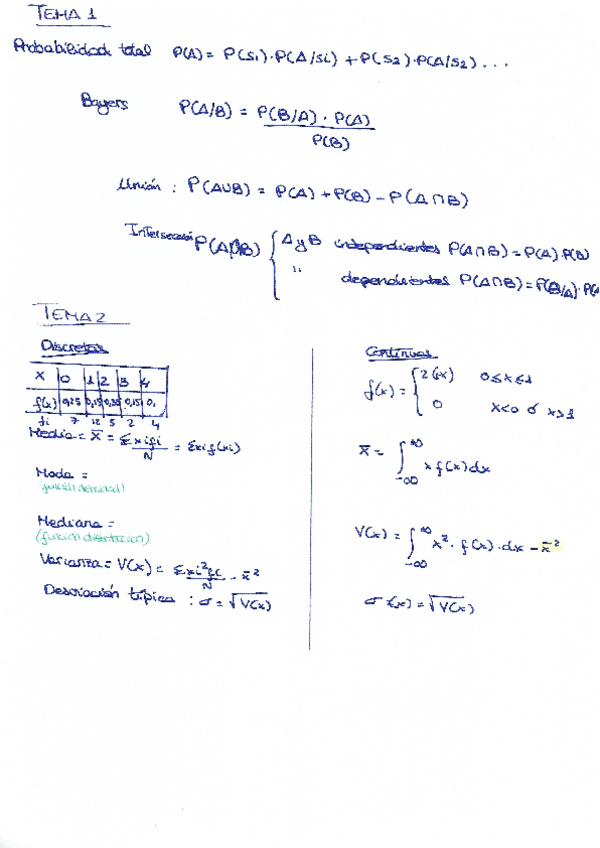 TEMA 1
Probabilidad total P(A) = P(S1)·P(A/Si) + P(S2)·P(A/S2)...
Bayers P(A/B) = P(B/A) · P(A)
P(B)
Unión : P(A∪B) = P(A) + P(B) - P(A∩B)
Intersección P(A∩B) { A y B independientes P(A∩B) = P(A)·P(B)
" dependientes P(A∩B) = P(B/A)·P(A
TEMA 2
Discretas
X 0 1 2 3 4
f(x) 0,25 0,15 0,35 0,15 0,
fi 7 12 5 2 4
Media = X̄ = Σxifi / N = Σxi f(xi)
Moda =
(función densidad)
Mediana =
(función distribución)
Varianza = V(x) = Σxi²fi / N - x̄²
Desviación típica : σ = √V(x)
Continuas
f(x) = { 2(x) 0≤x≤1
0 x<0 ó x>1
x̄ = ∫ -∞ +∞ x f(x) dx
V(x) = ∫ -∞ +∞ x² · f(x) · dx - x̄²
σ (x) = √V(x)